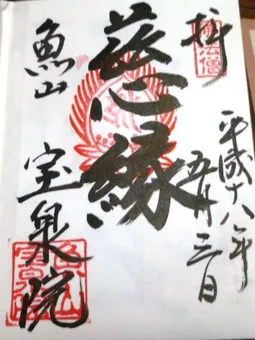 拝
平成十八年
五月三日
慈縁
魚山
宝泉院